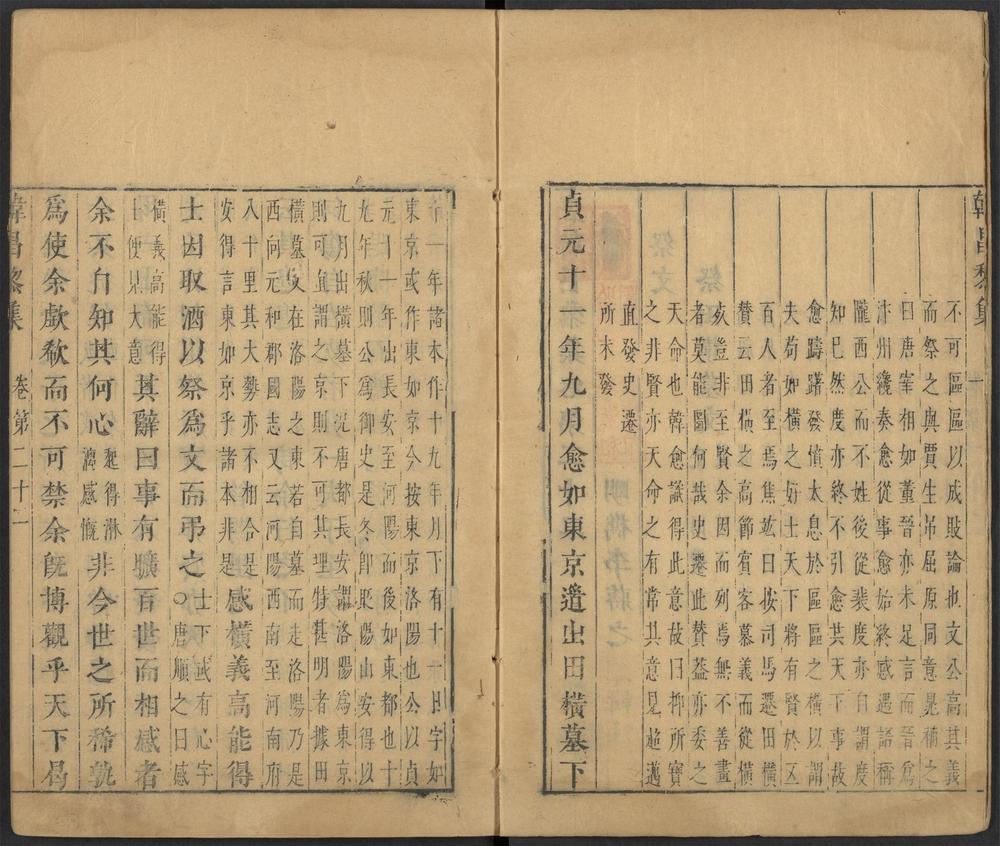 韓昌黎集 一
不可區區以成敗論也文公高其義
而祭之與賈生吊屈原同意晁補之
曰唐宰相如董晉亦未足言而晉爲
汴州纔奏愈從事愈始終感遇語稱
隴西公而不姓後從裴度亦自謂度
知巳然度亦終不引愈共天下事故
愈躊躇發憤太息於區區之橫以謂
夫苟如橫之好士天下將有賢於五
百人者至焉焦竑曰按司馬遷田橫
贊云田橫之高節賓客慕義而從橫
死豈非至賢余因而列焉無不善畫
者莫能圖何哉史遷此贊葢亦委之
天命也韓愈識得此意故曰抑所寶
之非賢亦天命之有常其意見超邁
直發史遷
所未發
貞元十一年九月愈如東京道出田橫墓下
十一年諸本作十九年月下有十一日字如
東京或作東如京今按東京洛陽也公以貞
元十一年出長安至河陽而後如東都也十
九年秋則公爲御史是冬卽貶陽山安得以
九月出橫墓下況唐都長安謂洛陽爲東京
則可直謂之京則不可其理特甚明者據田
橫墓又在洛陽之東若自墓而走洛陽乃是
西向元和郡國志又云河陽西南至河南府
八十里其大勢亦不相合是
安得言東如京乎諸本非是
感橫義高能得
士因取酒以祭爲文而弔之士下或有心字○唐順之曰感
橫義高能得士便見大意其辭曰事有曠百世而相感者
余不自知其何心起得淋漓感慨非今世之所稀孰
爲使余歔欷而不可禁余旣博觀乎天下曷
韓昌黎集 卷第二十二